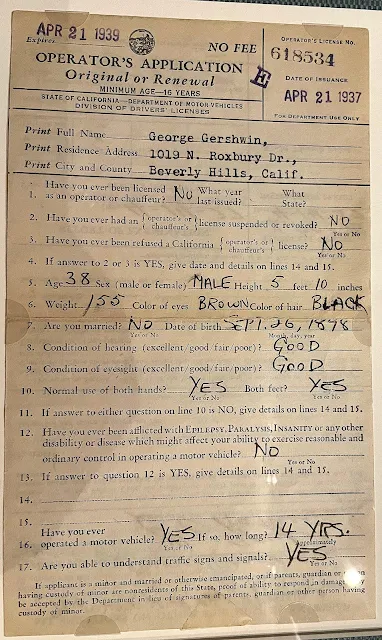 APR 21 1939
Expires
NO FEE
OPERATOR'S LICENSE NO.
618534
OPERATOR'S APPLICATION
Original or Renewal
MINIMUM AGE—16 YEARS
E
DATE OF ISSUANCE
APR 21 1937
STATE OF CALIFORNIA—DEPARTMENT OF MOTOR VEHICLES
DIVISION OF DRIVERS' LICENSES
FOR DEPARTMENT USE ONLY
Print Full Name George Gershwin,
Print Residence Address 1019 N. Roxbury Dr.,
Print City and County Beverly Hills, Calif.
1. Have you ever been licensed as an operator or chauffeur? NO What year last issued? What State?
2. Have you ever had an {operator's or chauffeur's} license suspended or revoked? NO
Yes or No
3. Have you ever been refused a California {operator's or chauffeur's} license? NO
Yes or No
4. If answer to 2 or 3 is YES, give date and details on lines 14 and 15.
5. Age 38 Sex (male or female) MALE Height 5 feet 10 inches
6. Weight 155 Color of eyes BROWN Color of hair BLACK
7. Are you married? NO Date of birth SEPT. 26, 1898
Yes or No Month, day, year
8. Condition of hearing (excellent/good/fair/poor)? GOOD
9. Condition of eyesight (excellent/good/fair/poor)? GOOD
10. Normal use of both hands? YES Both feet? YES
Yes or No Yes or No
11. If answer to either question on line 10 is NO, give details on lines 14 and 15.
12. Have you ever been afflicted with EPILEPSY, PARALYSIS, INSANITY or any other
disability or disease which might affect your ability to exercise reasonable and
ordinary control in operating a motor vehicle? NO
Yes or No
13. If answer to question 12 is YES, give details on lines 14 and 15.
14.
15.
16. Have you ever operated a motor vehicle? YES If so, how long? 14 YRS.
Yes or No Approximately
17. Are you able to understand traffic signs and signals? YES
Yes or No
If applicant is a minor and married or otherwise emancipated, or if parents, guardian or
having custody of minor are nonresidents of this State, proof of ability to respond in damages may
be accepted by the Department in lieu of signatures of parents, guardian or other person having
custody of minor.